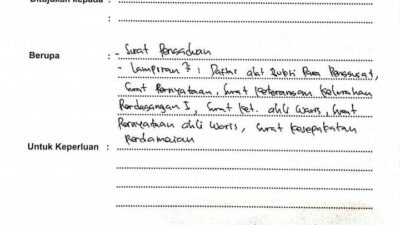 Ditujukan kepada :
Berupa : - Surat Pengaduan
- Lampiran² : Daftar alat Bukti Para Penggugat,
Surat Pernyataan, Surat Keterangan Kelurahan
Perdagangan I, Surat Ket. Ahli Waris, Surat
Pernyataan Ahli Waris, Surat Kesepakatan
Perdamaian
Untuk Keperluan :